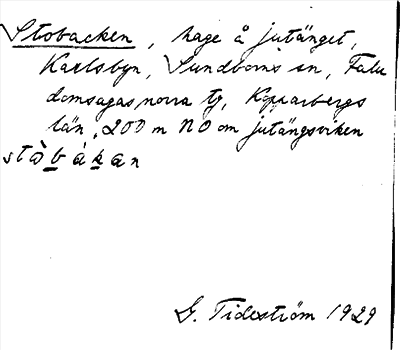 Stobacken, hage å jutänget,
Karlsbyn, Sundborns sn, Falu
domsagas norra tg, Kopparbergs
län, 200 m NO om jutängsviken
stàbákan
G. Tideström 1929